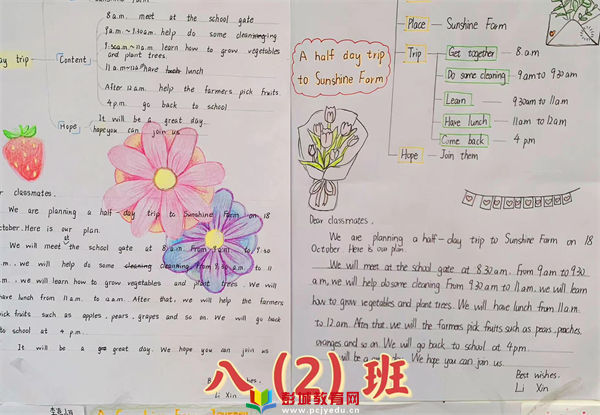 8 a.m. meet at the school gate
9 a.m.~ 9.30am. help do some cleaning
9:30am~11 a.m. learn how to grow vegetables
and plant trees.
Content
11 a.m~12a.m have lunch
ay trip
After 12a.m. help the farmers pick fruits.
4 p.m. go back to school
It will be a great day.
Hope
hope you can join us
classmates.
We are planning a half day trip to Sunshine Farm on 18
October. Here is our plan.
We will meet at the school gate at 8 a.m. From 9 a.m. to 9:30
a.m., we will help do some cleaning. From 9:30 a.m. to 11
a.m., we will learn how to grow vegetables and plant trees. We will
have lunch from 11 a.m. to 12 a.m. After that, we will help the farmers
pick fruit such as apples, pears, grapes and so on. We will go back
to school at 4 p.m.
It will be a great day. We hope you can join us
Best wishes.
Li Xin
A half day trip
to Sunshine Farm
Place — Sunshine Farm
Trip
Get together — 8 a.m
Do some cleaning — 9am to 9 30am
Learn — 9 30am to 11am
Have lunch — 11am to 12am
Come back — 4 pm
Hope — Join them
Dear classmates,
We are planning a half-day trip to Sunshine Farm on 18
October Here is our plan
We will meet at the school gate at 8.30am. From 9am to 9.30
a.m, we will help do some cleaning. From 9.30am to 11am, we will learn
how to grow vegetables and plant trees. We will have lunch from 11am.
to 12am. After that. we will the farmers pick fruits such as pears, peaches,
oranges and so on. We will go back to school at 4pm.
will be a great day. We hope you can join us.
Best wishes.
Li Xin
八(2)班
彭城教育网
www.pcjyedu.cn